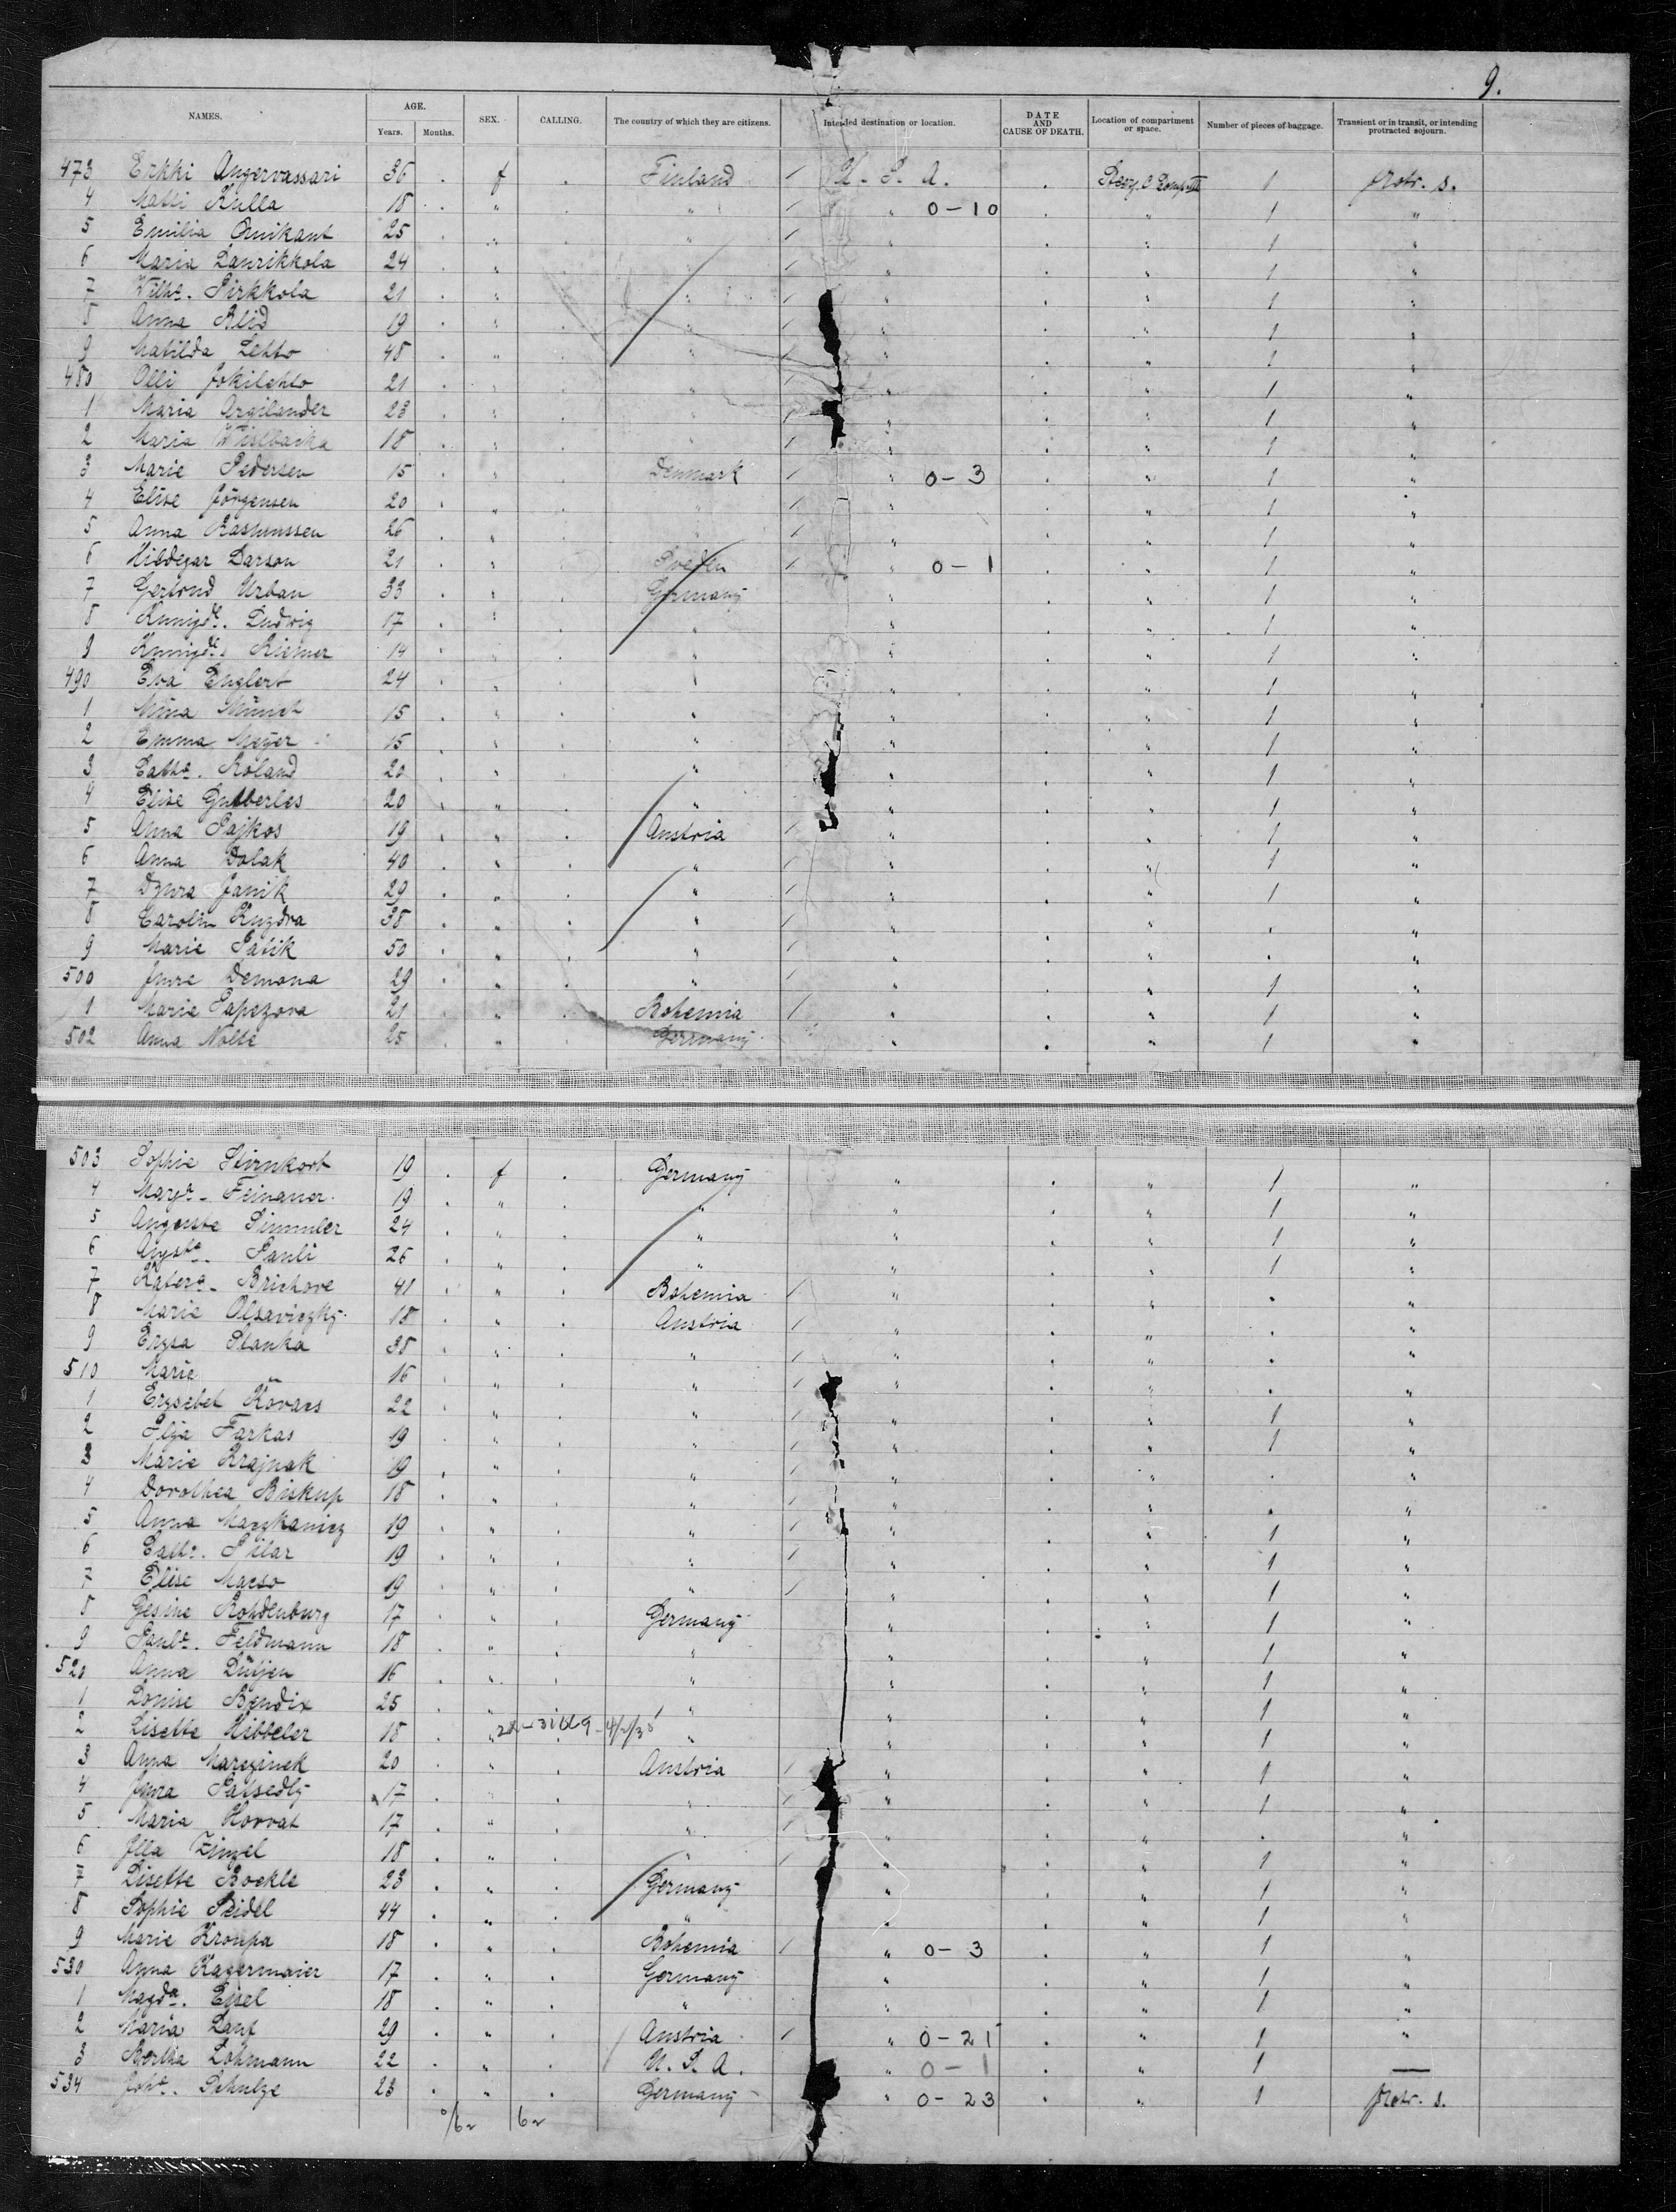 9.
NAMES. AGE. Years. Months. SEX. CALLING. The country of which they are citizens. Intended destination or location. DATE AND CAUSE OF DEATH. Location of compartment or space. Number of pieces of baggage. Transient or in transit, or intending protracted sojourn.
473 Erkki Angervassari 36 . f . Finland / U. S. A. . 1 protr. s.
4 Matti Kulla 18 . " . " / " 0-10 . " 1 "
5 Emilia 25 . " . " / " . " 1 "
6 Maria Laurikkola 24 . " . " / " . " 1 "
7 Wilh. Pirkkola 21 . " . " / " . " 1 "
8 Anna Blid 19 . " . " / " . " 1 "
9 Matilda Lehto 48 . " . " / " . " 1 "
480 Olli Jokilehto 21 . " . " / " . " 1 "
1 Maria Argilander 23 . " . " / " . " 1 "
2 Maria 18 . " . " / " . " 1 "
3 Marie Pedersen 15 . " . Denmark / " 0-3 . " 1 "
4 Elise Jörgensen 20 . " . " / " . " 1 "
5 Anna Rasmussen 26 . " . " / " . " 1 "
6 Hildegar Larson 21 . " . Sweden / " 0-1 . " 1 "
7 Gertrud Urban 33 . " . Germany " . " 1 "
8 Kunigde. Ludwig 17 . " . " " . " 1 "
9 Kunigde. Riemer 14 . " . " " . " 1 "
490 Eva Englert 24 . " . " " . " 1 "
1 Mina Münch 15 . " . " " . " 1 "
2 Emma Meyer 15 . " . " " . " 1 "
3 Catha. Roland 20 . " . " " . " 1 "
4 Elise Gutberles 20 . " . " " . " 1 "
5 Anna Pajkos 19 . " . Austria / " . " 1 "
6 Anna Dolak 40 . " . " / " . " 1 "
7 Dzura Janik 29 . " . " / " . " 1 "
8 Carolin Kuzdra 38 . " . " / " . " . "
9 Marie Patik 50 . " . " / " . " . "
500 Imre Demona 29 . " . " / " . " 1 "
1 Marie Papezova 21 . " . Bohemia / " . " 1 "
502 Anna Nolte 25 . " . Germany " . " 1 "
503 Sophie Stirnkorb 19 . f . Germany " . " 1 "
4 Margr. Feinauer 19 . " . " " . " 1 "
5 Auguste Simmler 24 . " . " " . " 1 "
6 Augste. Pauli 26 . " . " " . " 1 "
7 Katera. Brichove 41 . " . Bohemia / " . " . "
8 Marie Olsaviczky 18 . " . Austria / " . " . "
9 Erzsa Stanka 38 . " . " / " . " . "
510 Marie " 16 . " . " / " . " . "
1 Erzsebet Kovacs 22 . " . " / " . " 1 "
2 Ilja Farkas 19 . " . " / " . " 1 "
3 Marie Krajnak 19 . " . " / " . " . "
4 Dorothea Biskup 18 . " . " / " . " . "
5 Anna Maczkanicz 19 . " . " / " . " 1 "
6 Catha. Pilar 19 . " . " / " . " 1 "
7 Elise Macso 19 . " . " / " . " 1 "
8 Gesine Rohdenburg 17 . " . Germany " . " 1 "
9 Paule. Feldmann 18 . " . " " . " 1 "
520 Anna Lütjen 16 . " . " " . " 1 "
1 Louise Bendix 25 . " . " " . " 1 "
2 Lisette Hibbeler 18 . " . " " . " 1 "
3 Anna Marczinek 20 . " . Austria / " . " 1 "
4 Imra Patsedly 17 . " . " / " . " 1 "
5 Maria Horvat 17 . " . " / " . " . "
6 Illa Zinzel 18 . " . " / " . " 1 "
7 Lisette Boekle 23 . " . Germany " . " 1 "
8 Sophie Seidel 44 . " . " " . " 1 "
9 Marie Kroupa 18 . " . Bohemia / " 0-3 . " 1 "
530 Anna Kagermaier 17 . " . Germany " . " 1 "
1 Magda. Eisel 18 . " . " " . " 1 "
2 Maria Lanz 29 . " . Austria / " 0-21 . " 1 "
3 Bertha Lohmann 22 . " . U. S. A. " 0-1 . " 1 —
534 Joha. Schulze 23 . " . Germany " 0-23 . " 1 protr. s.